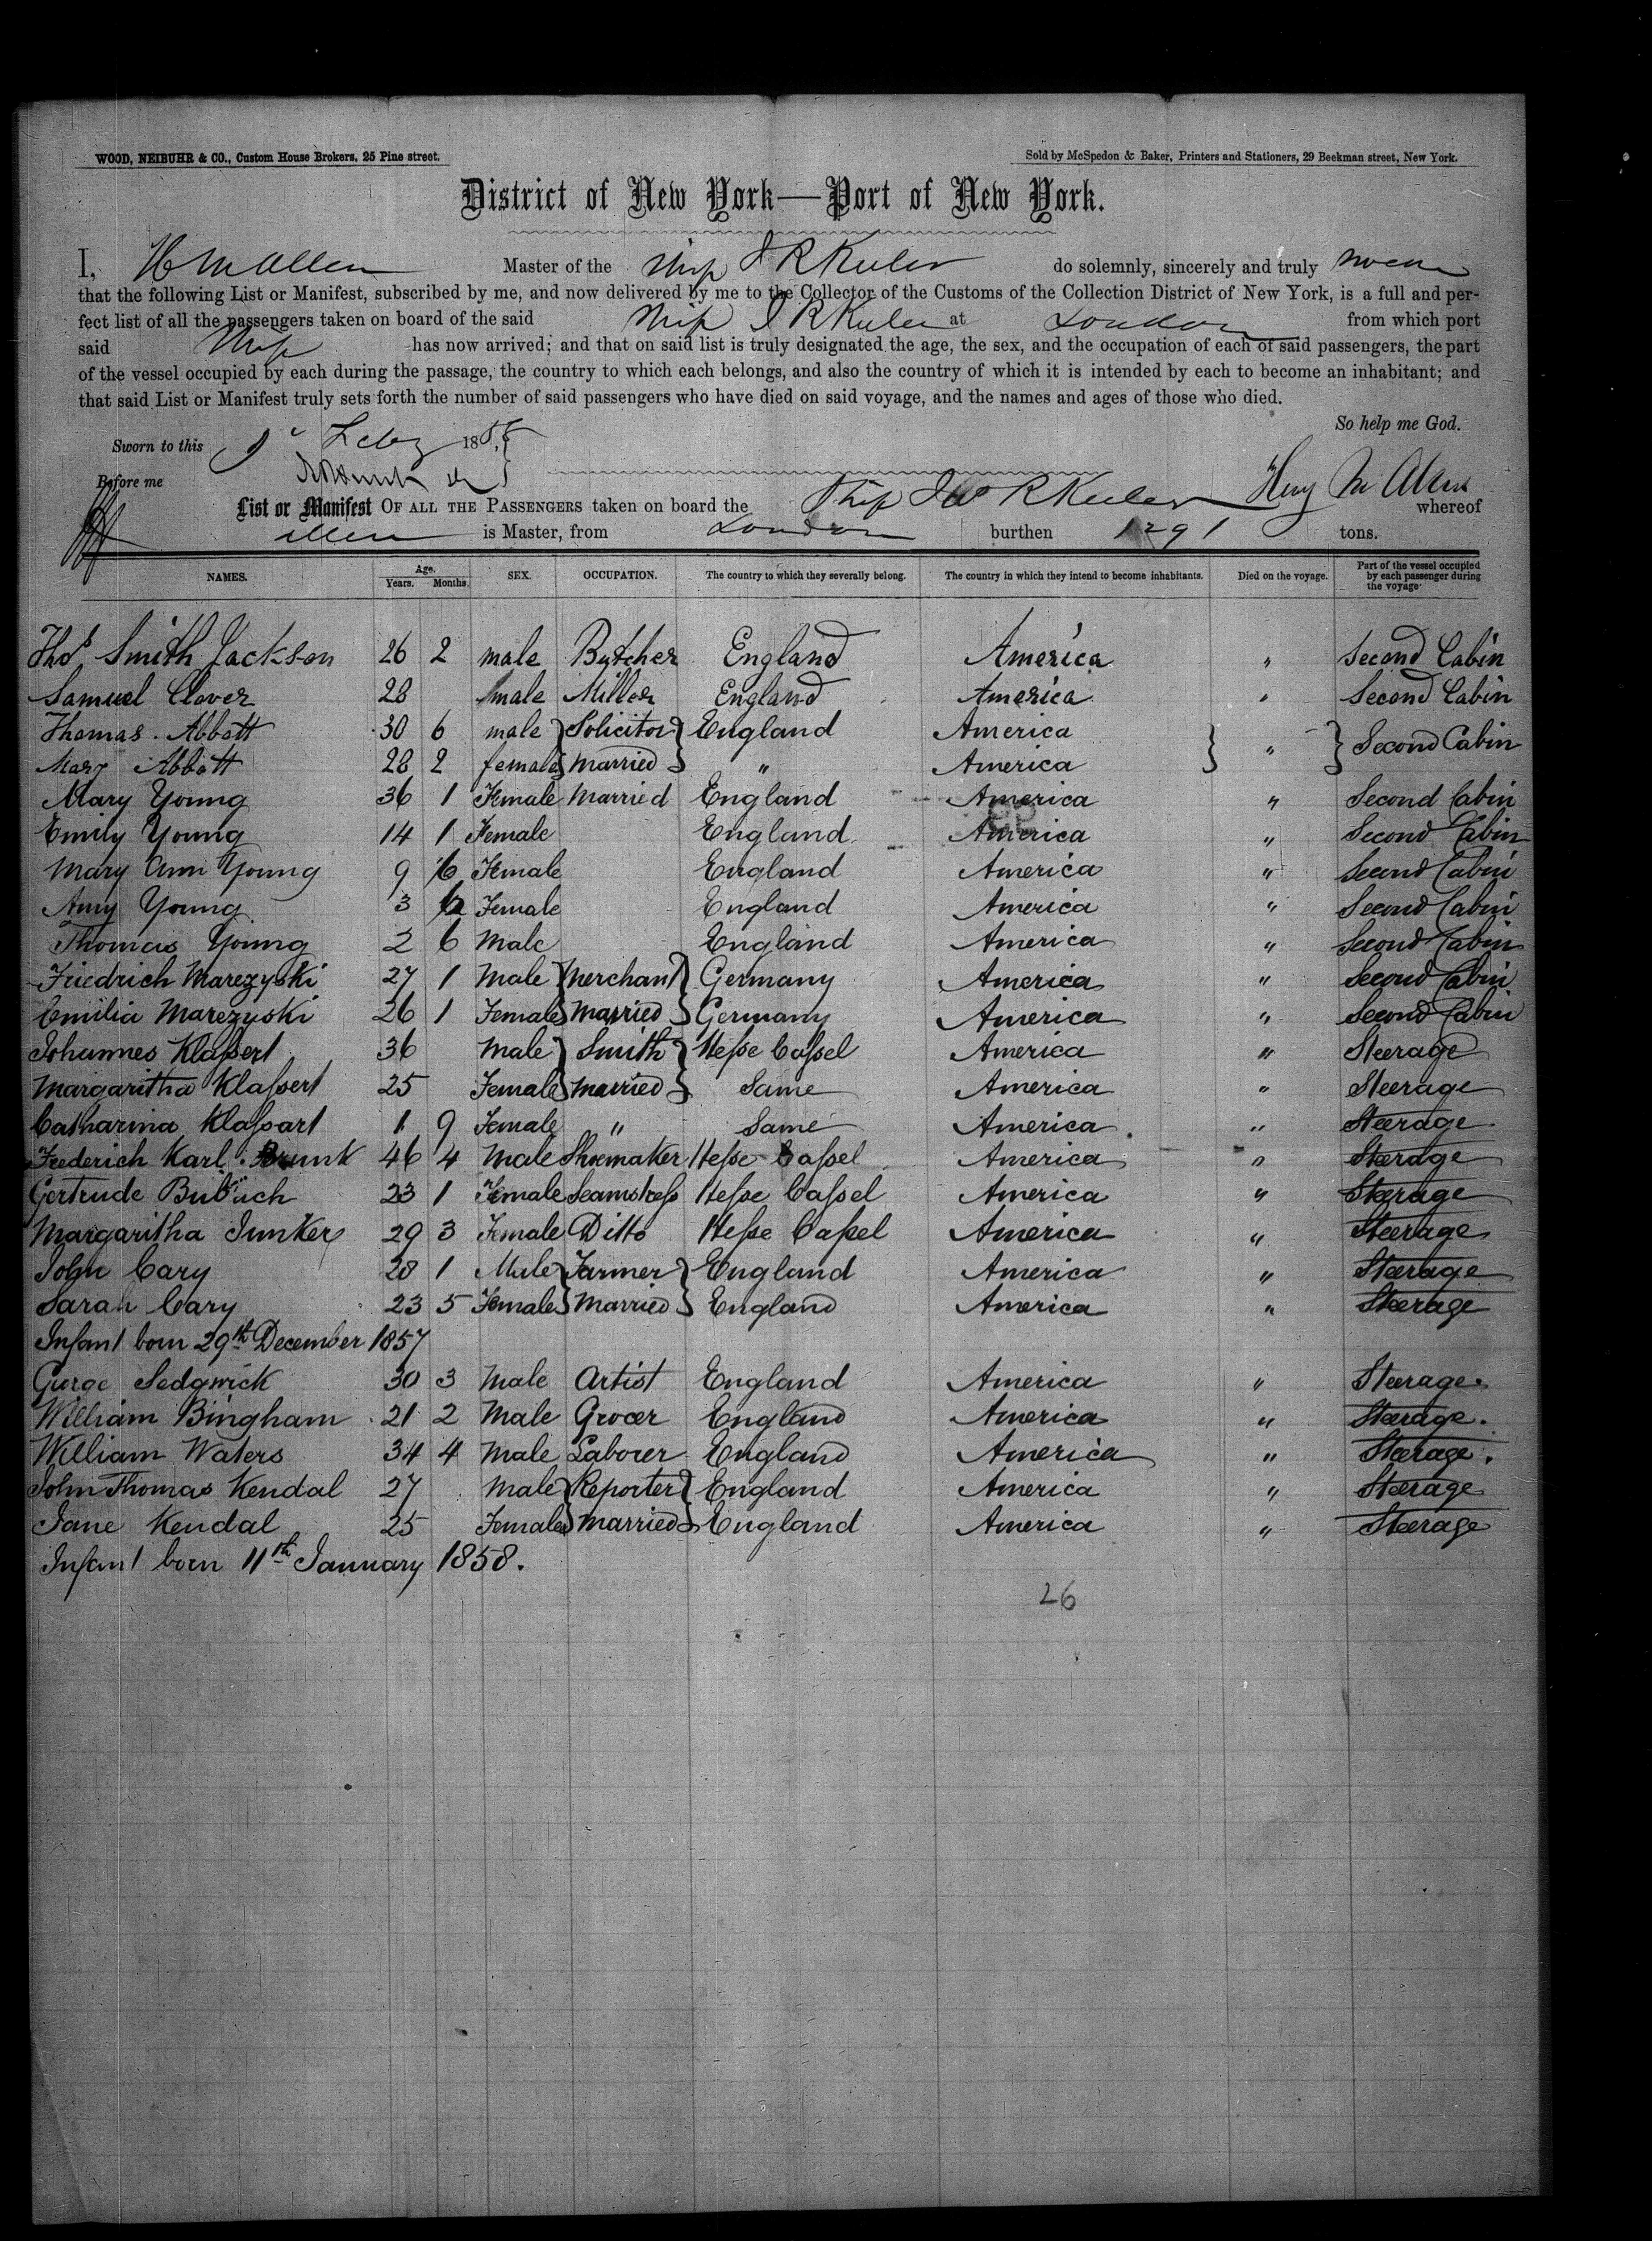 WOOD, NEIBUHR & CO., Custom House Brokers, 25 Pine street.
Sold by McSpedon & Baker, Printers and Stationers, 29 Beekman street, New York.
District of New York—Port of New York.
I, H M Allen Master of the Ship J R Keeler do solemnly, sincerely and truly swear
that the following List or Manifest, subscribed by me, and now delivered by me to the Collector of the Customs of the Collection District of New York, is a full and per-
fect list of all the passengers taken on board of the said Ship J R Keeler at London from which port
said Ship has now arrived; and that on said list is truly designated the age, the sex, and the occupation of each of said passengers, the part
of the vessel occupied by each during the passage, the country to which each belongs, and also the country of which it is intended by each to become an inhabitant; and
that said List or Manifest truly sets forth the number of said passengers who have died on said voyage, and the names and ages of those who died.
So help me God.
Sworn to this Feby 1858
Before me
Henry M Allen
List or Manifest OF ALL THE PASSENGERS taken on board the Ship Jno R Keeler whereof
Allen is Master, from London burthen 1291 tons.
NAMES. Age. Years. Months. SEX. OCCUPATION. The country to which they severally belong. The country in which they intend to become inhabitants. Died on the voyage. Part of the vessel occupied by each passenger during the voyage.
Thos Smith Jackson 26 2 male Butcher England America " Second Cabin
Samuel Clover 28 male Miller England America " Second Cabin
Thomas Abbott 30 6 male } Solicitor } England America
Mary Abbott 28 2 female } Married } " America } " } Second Cabin
Mary Young 36 1 Female Married England America " Second Cabin
Emily Young 14 1 Female England America " Second Cabin
Mary Ann Young 9 6 Female England America " Second Cabin
Amy Young 3 Female England America " Second Cabin
Thomas Young 2 6 Male England America " Second Cabin
Friedrich Marezyski 27 1 Male } Merchant } Germany America " Second Cabin
Emilia Marezyski 26 1 Female } Married } Germany America " Second Cabin
Johannes Klassert 36 Male } Smith } Hesse Cassel America " Steerage
Margaritha Klassert 25 Female } Married } Same America " Steerage
Catharina Klassart 1 9 Female " Same America " Steerage
Frederich Karl Brunk 46 4 Male Shoemaker Hesse Cassel America " Steerage
Gertrude 23 1 Female Seamstress Hesse Cassel America " Steerage
Margaritha Junker 29 3 Female Ditto Hesse Cassel America " Steerage
John Cary 28 1 Male } Farmer } England America " Steerage
Sarah Cary 23 5 Female } Married } England America " Steerage
Infant born 29th December 1857
Gurge Sedgwick 30 3 Male Artist England America " Steerage.
William Bingham 21 2 Male Grocer England America " Steerage.
William Waters 34 4 Male Laborer England America " Steerage.
John Thomas Kendal 27 Male } Reporter } England America " Steerage
Jane Kendal 25 Female } Married } England America " Steerage
Infant born 11th January 1858.
26